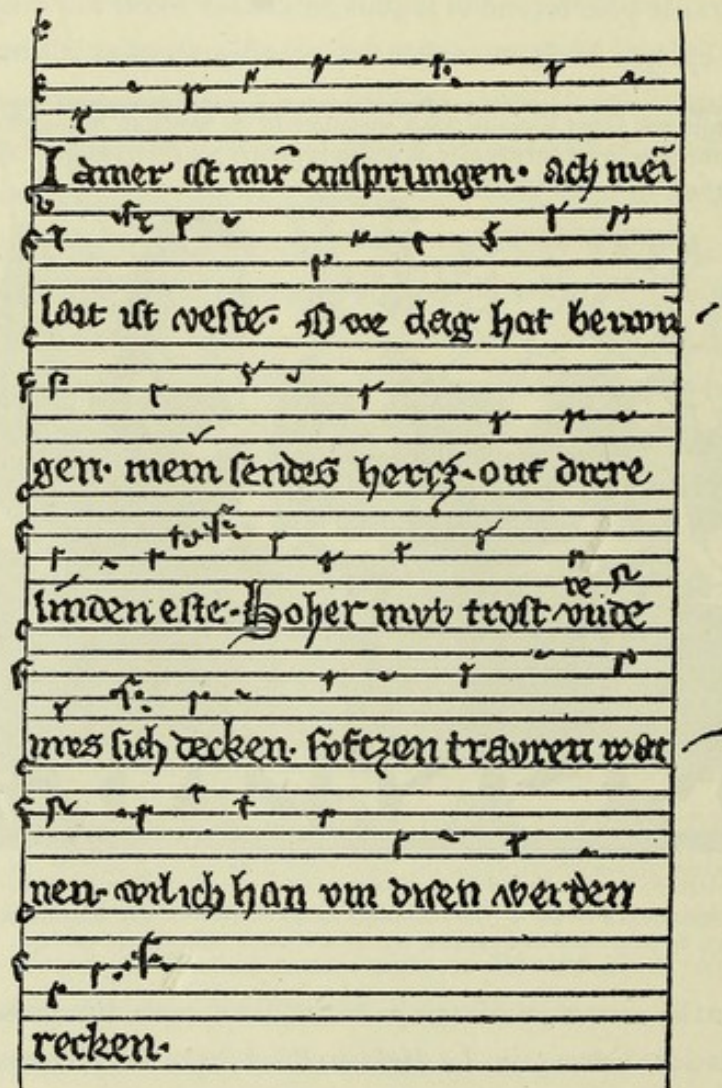 Iamer ist mir̄ entsprungen. Ach mei᷑
lait ist veste. Owe dag hat betwū
gen. mein sendes hercz. ouf durre
linden este. Hoher mvt trost vnde re
mes sich decken. softzen travren wei
nen. wil ich han vm disen werden
recken.